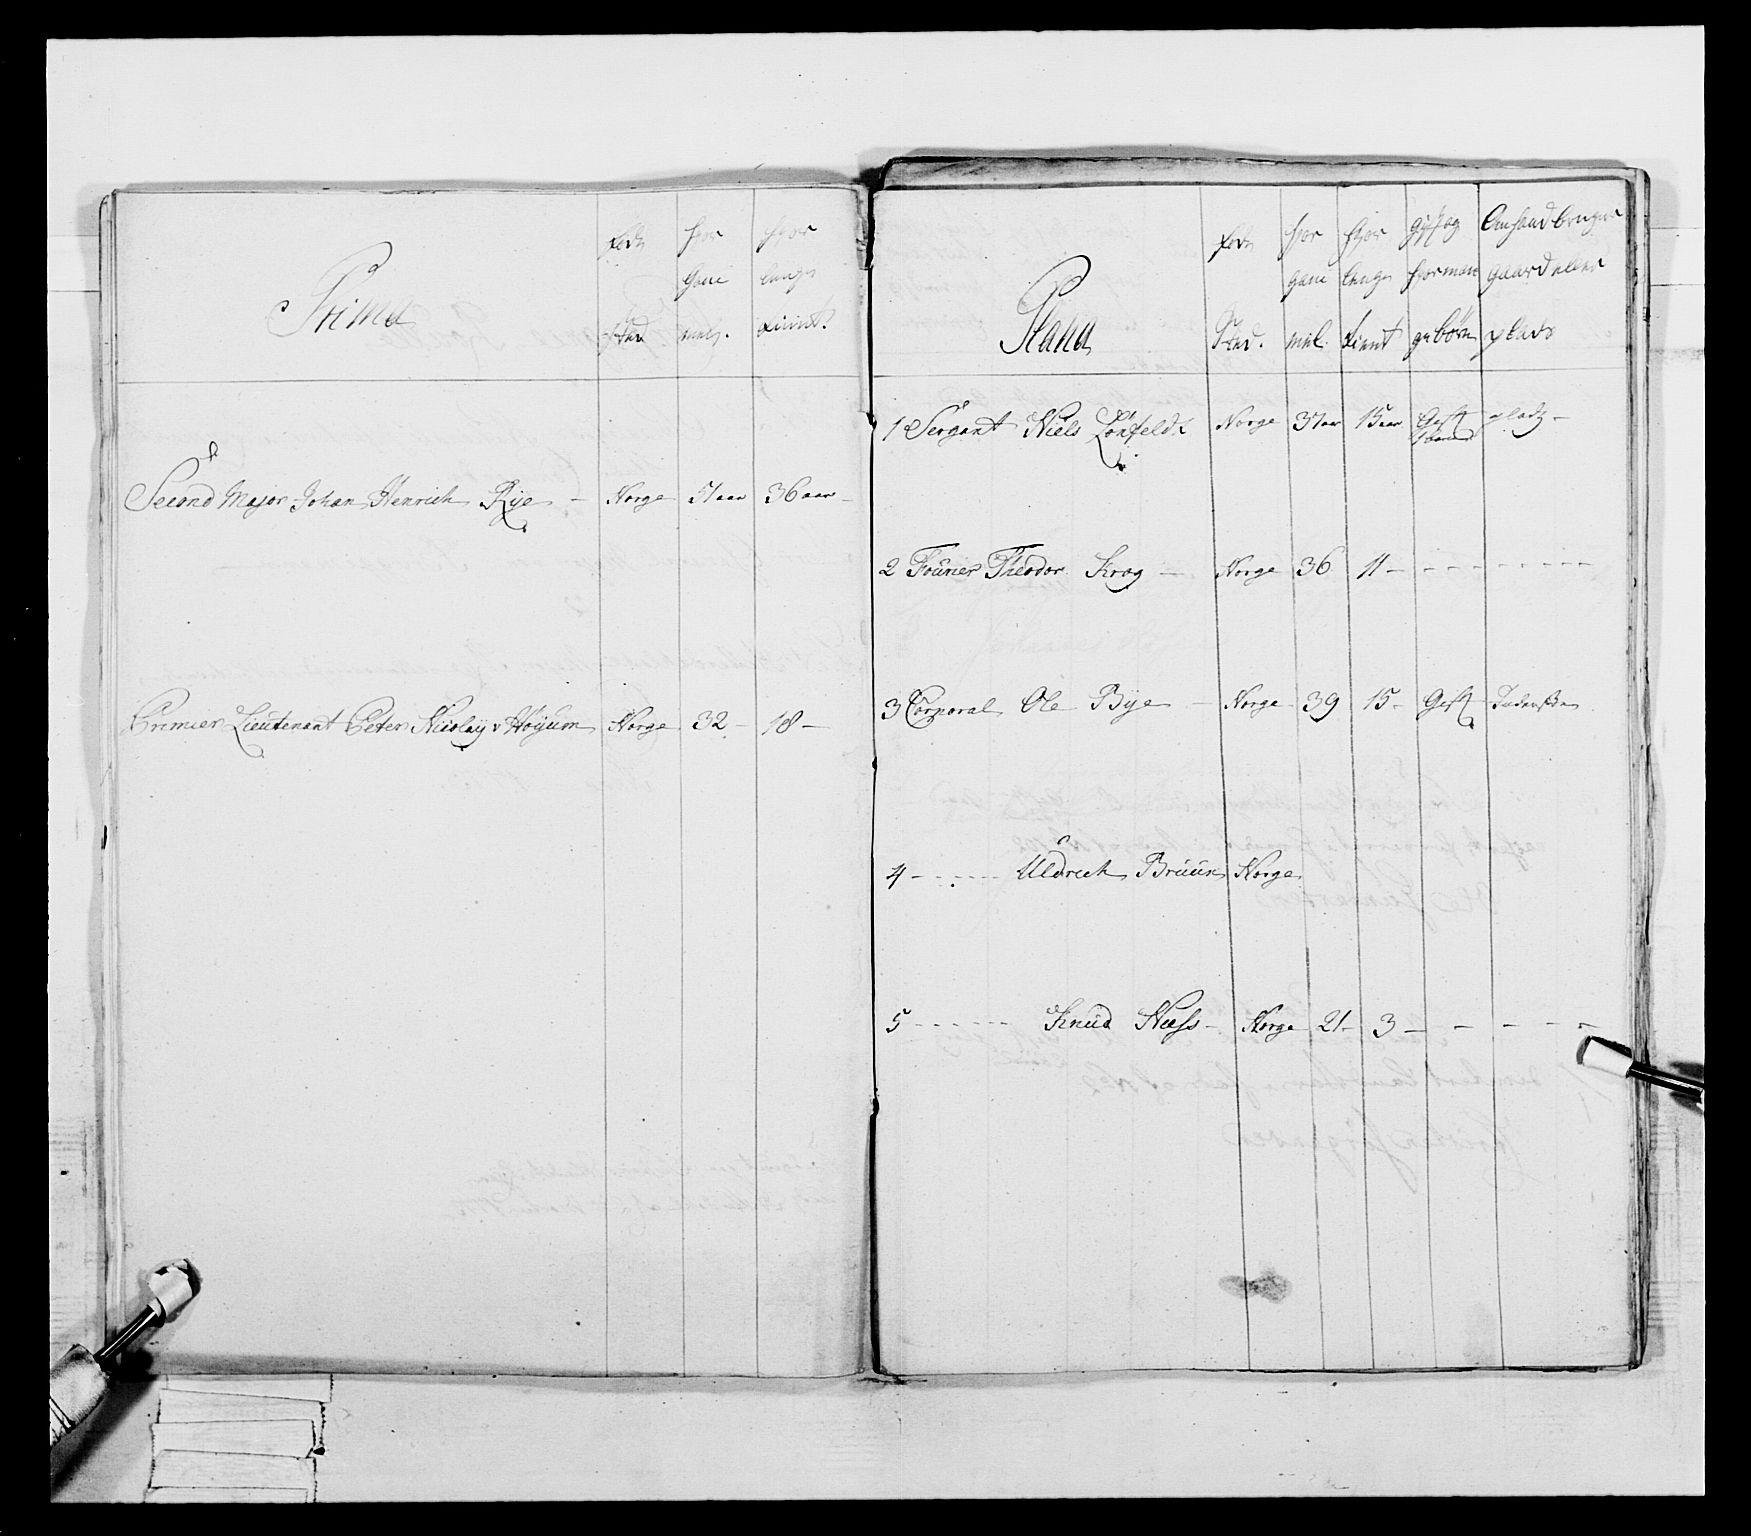 Prima
föde Sted
hvor gam̄el
hvor længe tient
Second Major Johan Henrich Rye - Norge 51 aar 36 aar -
Premier Lieutenant Peter Nicolaÿ v Höÿum Norge 32 - 18 -
Plana
föde Sted.
hvor gam̄el
hvor længe tient
gift og hvor mange börn
gaard eller plads
1 Sergant Niels Lönfeldt Norge 37 aar 15 aar Gift pladz -
2 Fourier Theodor Krog - Norge 36 11 - - - - - - - -
3 Corporal Ole Bye - Norge 39 15 - Gift
4 - - - - - Uldrich Bruun Norge
5 - - - - - Knud Næss - Norge 21 - 3 - - - - -